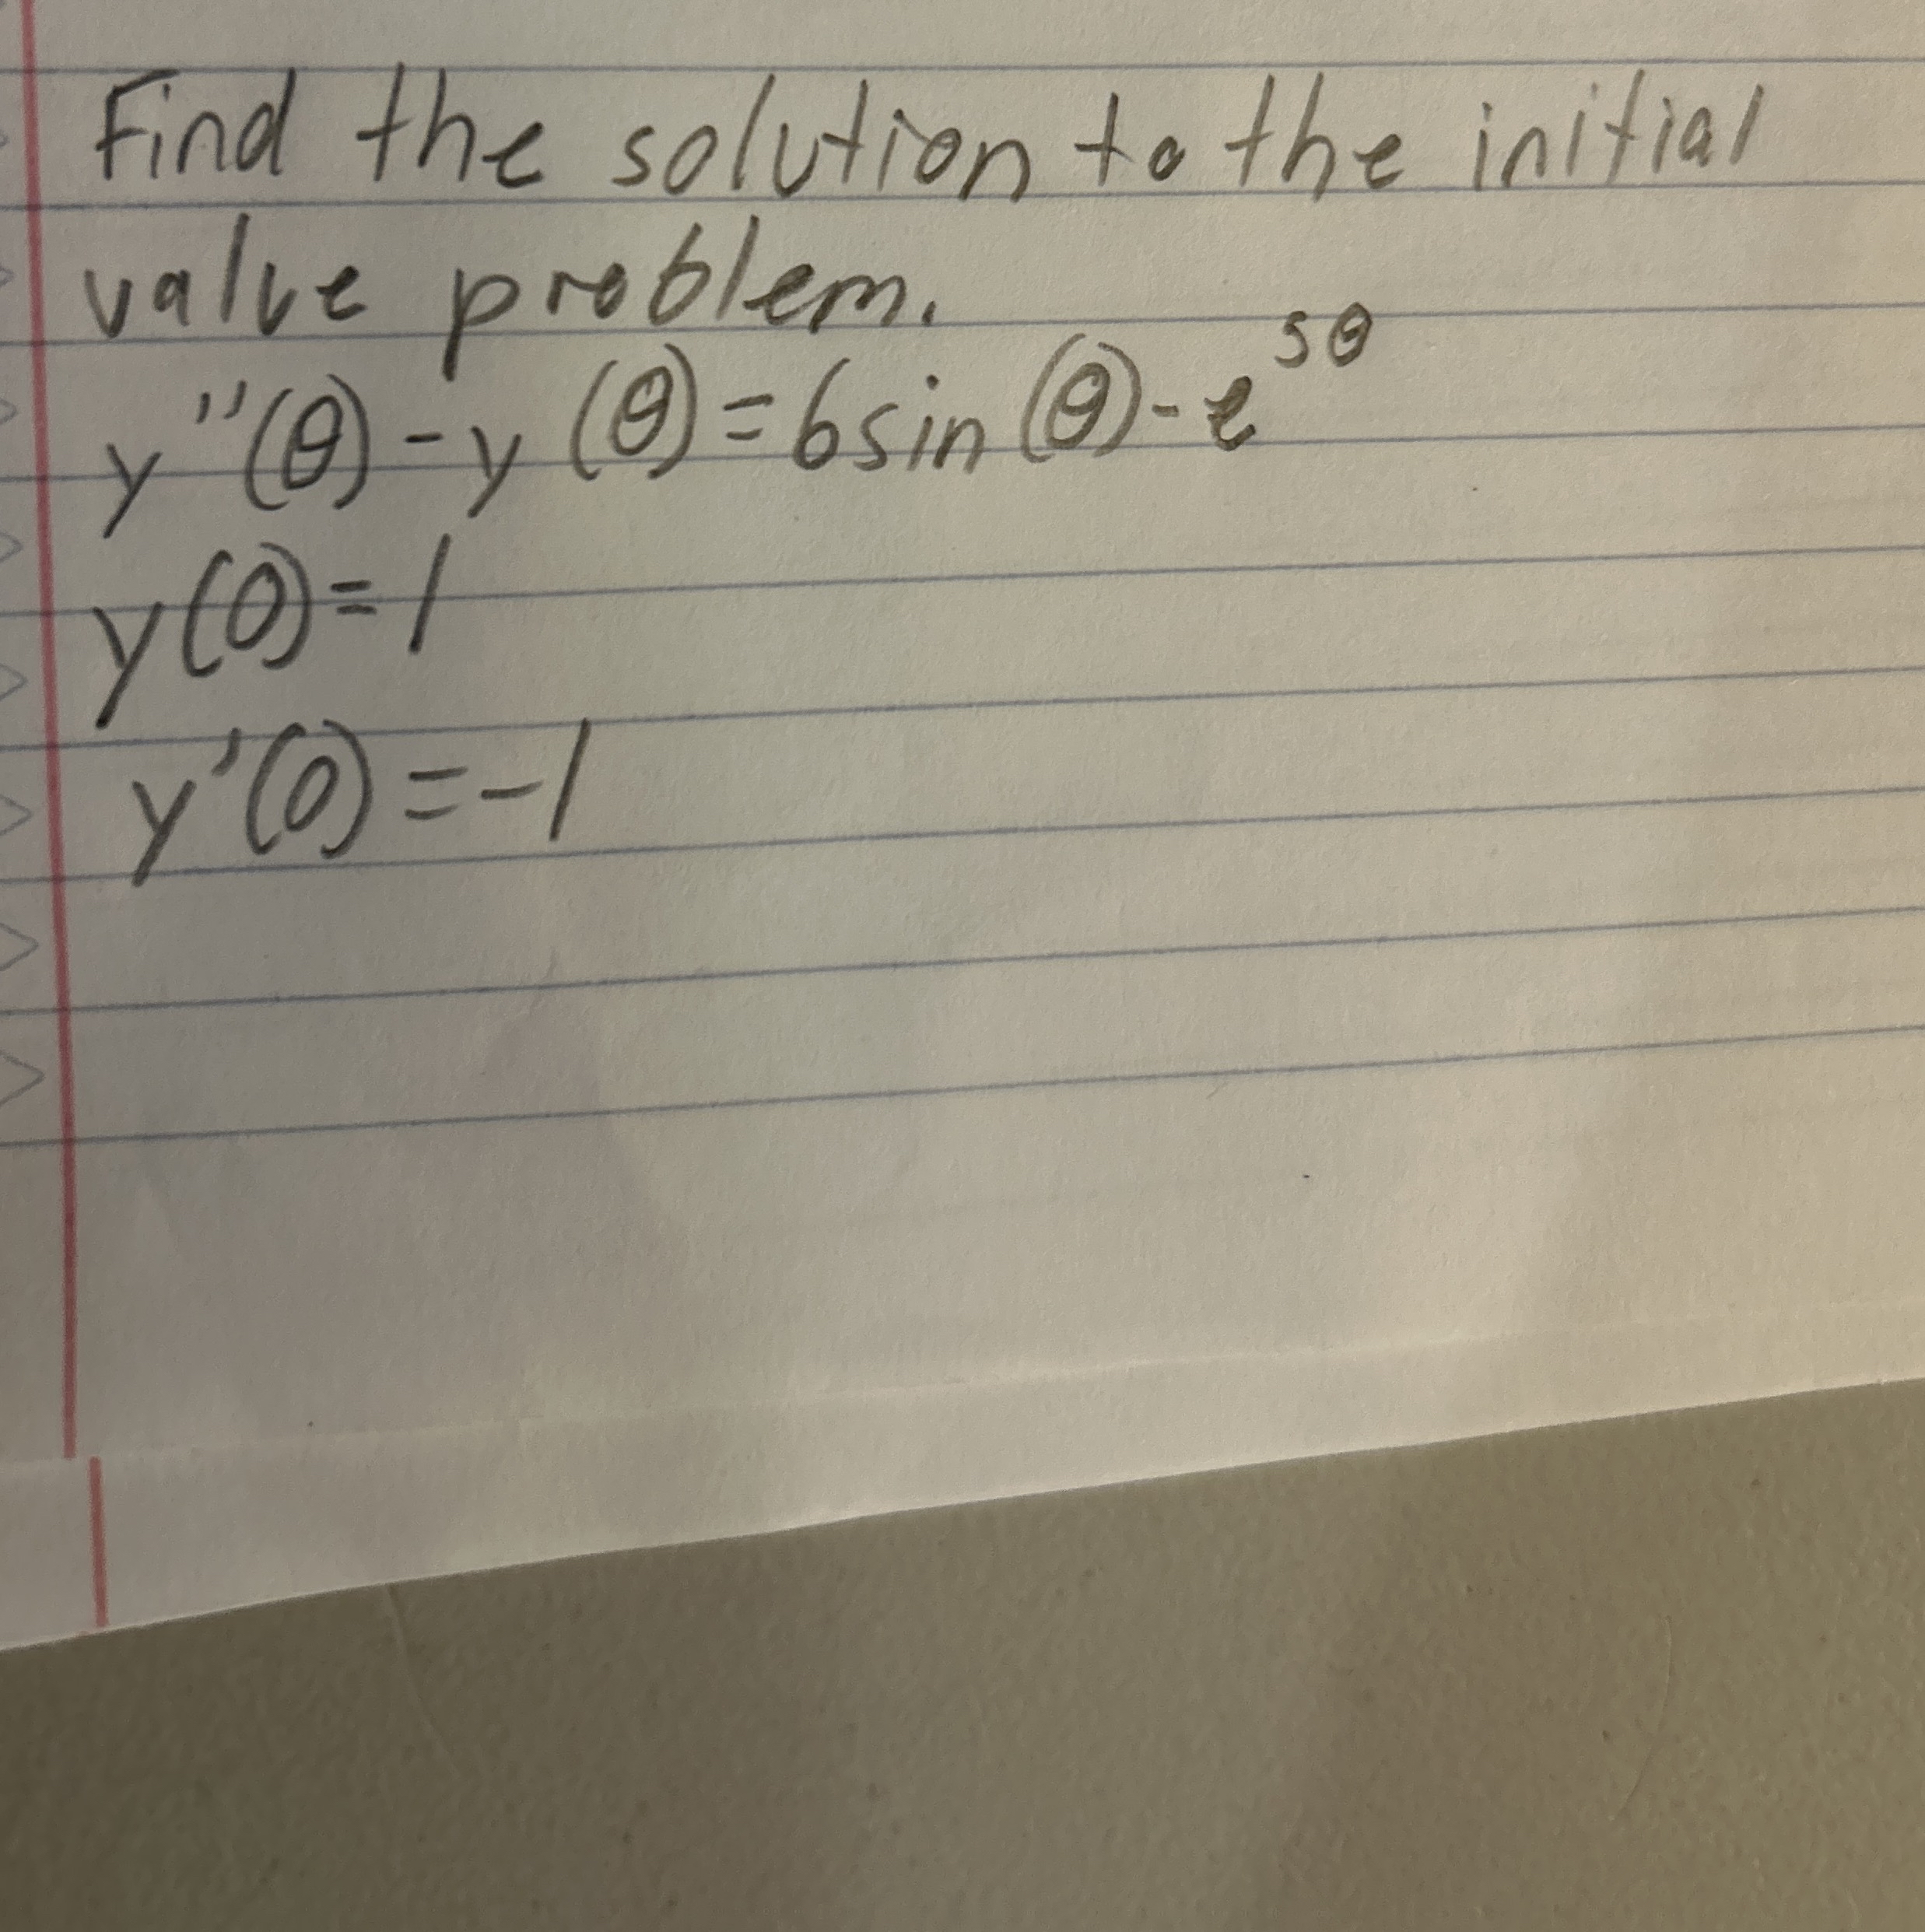 Find the solution to the initial
value problem.
y''(θ)-y(θ)=6sin(θ)-e^5θ
y(0)=1
y'(0)=-1